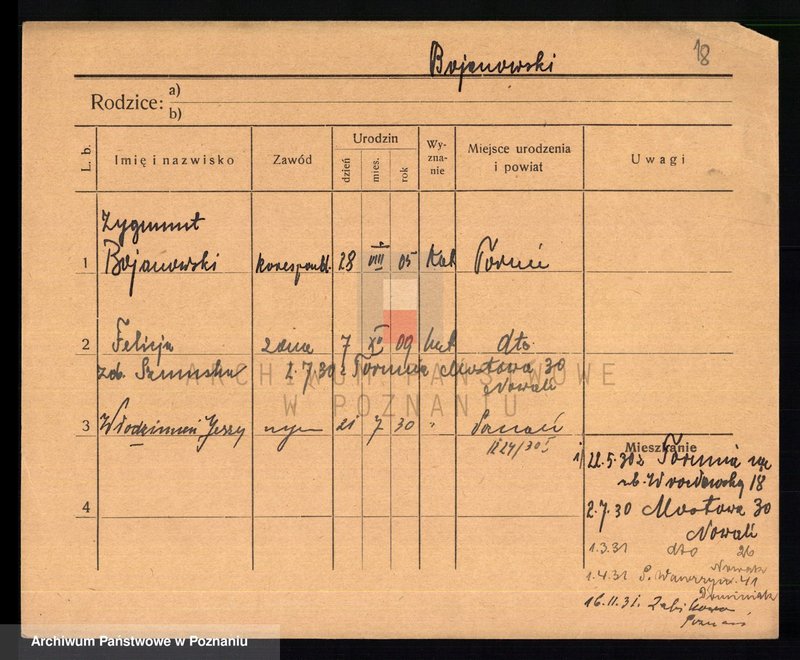 18
Bojanowski
Rodzice: a)
b)
L. b.
Imię i nazwisko
Zawód
Urodzin
dzień
mies.
rok
Wy-
zna-
nie
Miejsce urodzenia
i powiat
Uwagi
Zygmunt
1 Bojanowski korespond. 28 VIII 05 kat Toruń
2 Felicja żona 7 XII 09 kat dto
2.7.30 z Torunia Mostowa 30
Nowak
3 Włodzimierz Jerzy syn 21 7 30 " Poznań
1124/30
4
Mieszkanie
1) 22.5.30 z Torunia
18
2.7.30 Mostowa 30
Nowak
1.3.31 dto 26
Nowak
1.4.31 Ś. Wawrzyn. 41
Dominiak
16.11.31. Żabikowo
Poznań
ARCHIWUM PAŃSTWOWE
W POZNANIU
Archiwum Państwowe w Poznaniu